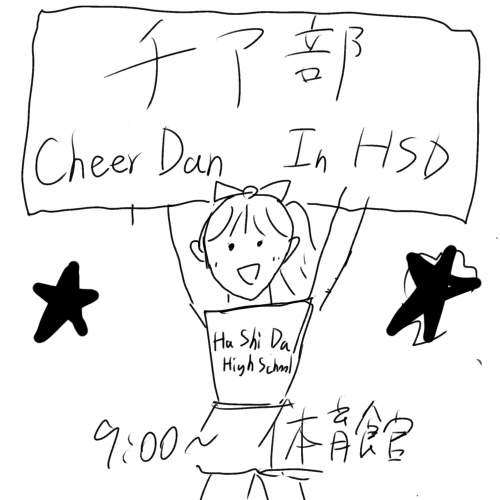 チア部
Cheer Dan In HSD
Ha Shi Da
High School
9:00~ 体育館